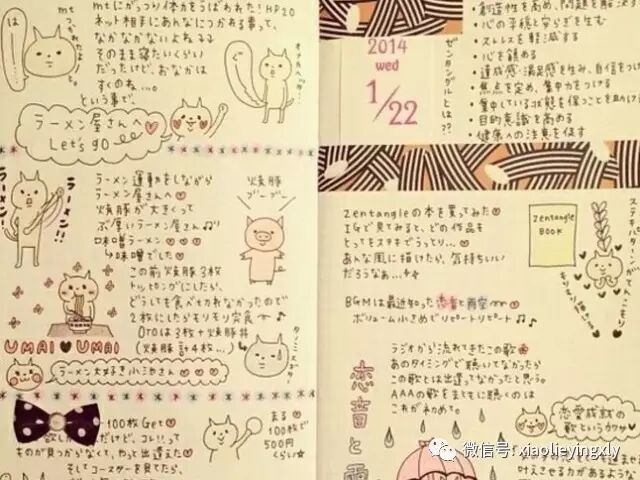 mtにがっつり体力をうばわれた！HP20
ネット相手にあんなにつかれる事って、
なかなかないよねふふ
そのまま寝たいくらい
だったけど、おなかは
すくのね…。
という事で、
ラーメン屋さんへ
Let's go
ラーメン!!
ラーメン運動をしながら
ラーメン屋さんへ
焼豚が大きくって
ぶ厚いラーメン屋さん♫
味噌ラーメン
味噌でした
この前焼豚3枚
トッピングにしたら、
どうしても食べきれなかったので
2枚にしたらモリモリ完食
OTOは3枚+焼豚丼
(焼豚計4枚…)
焼豚
ブーブー
UMAI♥UMAI
ラーメン大好き小池さん
100枚Get
ものが見つからなくて、やっと出逢えた
そしてコースターを見てたら、
まる
100枚で
500円
くらい
創造性を高め、問題を解決す
・心の平穏と安らぎを生む
・ストレスを軽減する
・心を鎮める
・達成感・満足感を生み、自信をつけ
・焦点を定め、集中力をつける
・集中している状態を保つことを助け
・目的意識を高める
・健康への注意を促す
2014
wed
1/22
ゼンタングルとは??
Zentangleの本を買ってみた
IGで見てみると、どの作品も
とってもステキでうっとり…
あんな風に描けたら、気持ちいい
だろうなぁ…
Zentangle
BOOK
BGMは最近知った恋音と雨空
ボリューム小さめでリピートリピート♫♪
恋音と雨
ラジオから流れてきたこの歌
あのタイミングで聴いてなかったら
この歌とは出逢ってなかったと思う。
AAAの歌をまともに聴くのは
これが初めて。
恋愛成就の
歌というウワサ
叶えさせる力があるような
微信号: xiaolieyingxly